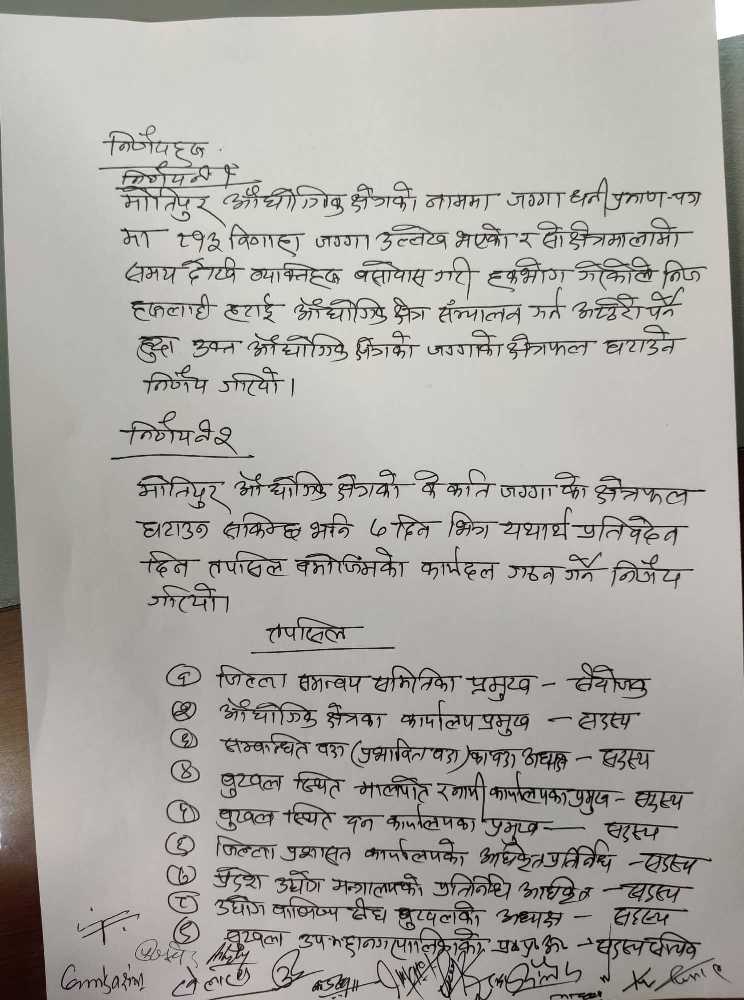 निर्णयहरू
निर्णय नं १
मोतिपुर औद्योगिक क्षेत्रको नाममा जग्गा धनी प्रमाण-पत्र
मा ८१३ विगाहा जग्गा उल्लेख भएको र सो क्षेत्रमा लामो
समय देखि व्यक्तिहरू बसोवास गरी हकभोग गरेकोले निज
हरूलाई हटाई औद्योगिक क्षेत्र संचालन गर्न अप्ठेरो पर्ने
हुदा उक्त औद्योगिक क्षेत्रको जग्गाको क्षेत्रफल घटाउने
निर्णय गरियो।
निर्णय नं २
मोतिपुर औद्योगिक क्षेत्रको के कति जग्गा को क्षेत्रफल
घटाउन सकिन्छ भनि ७ दिन भित्र यथार्थ प्रतिवेदन
दिन तपसिल बमोजिमको कार्यदल गठन गर्ने निर्णय
गरियो।
तपसिल
१ जिल्ला समन्वय समितिका प्रमुख - संयोजक
२ औद्योगिक क्षेत्रका कार्यालय प्रमुख - सदस्य
३ सम्बन्धित वडा (प्रभावित वडा) का वडा अध्यक्ष - सदस्य
४ बुटवल स्थित मालपोत र नापी कार्यालयका प्रमुख - सदस्य
५ बुटवल स्थित वन कार्यालयका प्रमुख - सदस्य
६ जिल्ला प्रशासन कार्यालयको अधिकृत प्रतिनिधि - सदस्य
७ प्रदेश उद्योग मन्त्रालयको प्रतिनिधि अधिकृत - सदस्य
८ उद्योग वाणिज्य संघ बुटवलको अध्यक्ष - सदस्य
९ बुटवल उपमहानगरपालिकाको प्र.प्र.अ. - सदस्य सचिव